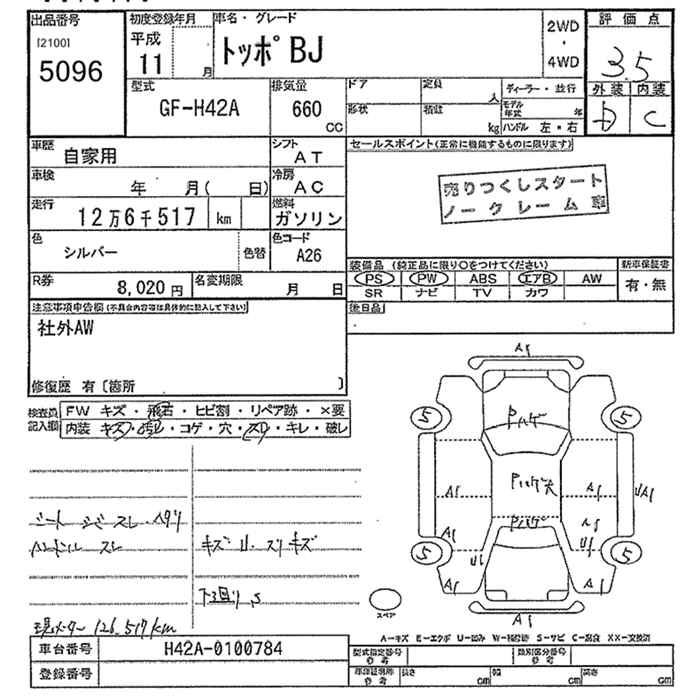 出品番号
[2100]
5096
初度登録年月
平成
11 月
車名・グレード
トッポBJ
2WD
・
4WD
評価点
3.5
外装 内装
D C
型式
GF-H42A
排気量
660
cc
ドア 定員 人
形状 積載 kg
ディーラー・並行
モデル年式 年
ハンドル 左・右
車歴
自家用
シフト
AT
車検
年 月( 日)
冷房
AC
走行
12万6千517 km
燃料
ガソリン
色
シルバー
色替
色コード
A26
R券
8,020円
名変期限
月 日
セールスポイント(正常に機能するものに限ります)
売りつくしスタート
ノークレーム
装備品 (純正品に限り○をつけてください)
PS PW ABS エアB AW
SR ナビ TV カワ
新車保証書
有・無
後日品
注意事項申告欄(不具合内容等は具体的に記入して下さい)
社外AW
修復歴 有〔箇所 〕
検査員記入欄
FW キズ・飛石・ヒビ割・リペア跡・×要
内装 キズ・汚レ・コゲ・穴・スレ・キレ・破レ
シート シミ スレ ヘタリ
ハンドル スレ
キズ U・スリキズ
下回り S
現メーター 126,517km
A1
5 5
Pハゲ
Pハゲ大
Pハゲ
A1 A1 UA1
A1 A1
U1 U1
5 5
A1 A1
A1
スペア
A-キズ E-エクボ U-凹み W-補修跡 S-サビ C-腐食 XX-交換済
車台番号
H42A-0100784
登録番号
型式指定番号
参考
類別区分番号
参考
車庫証明用
参考
長さ cm 幅 cm 高さ cm